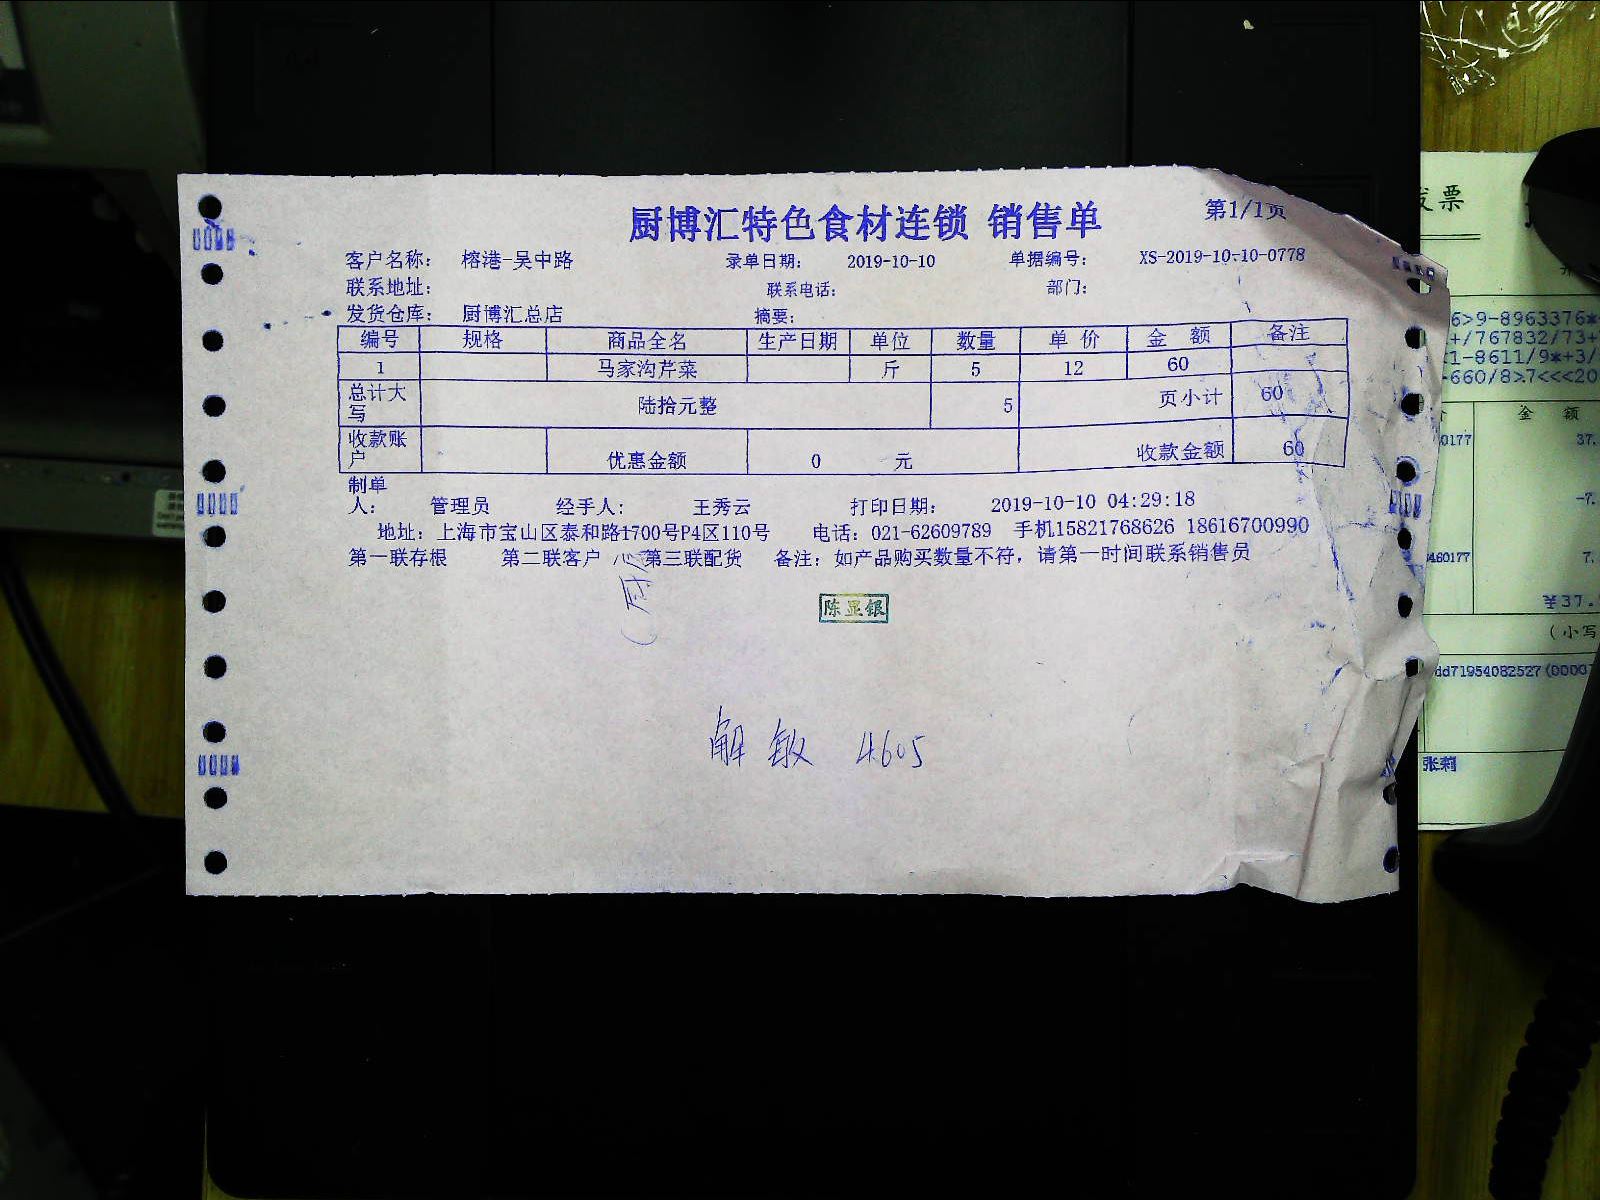 厨博汇特色食材连锁 销售单 第1/1页
客户名称: 榕港-吴中路 录单日期: 2019-10-10 单据编号: XS-2019-10-10-0778
联系地址: 联系电话: 部门:
发货仓库: 厨博汇总店 摘要:
编号 规格 商品全名 生产日期 单位 数量 单 价 金 额 备注
1 马家沟芹菜 斤 5 12 60
总计大写 陆拾元整 5 页小计 60
收款账户 优惠金额 0 元 收款金额 60
制单人: 管理员 经手人: 王秀云 打印日期: 2019-10-10 04:29:18
地址: 上海市宝山区泰和路1700号P4区110号 电话: 021-62609789 手机15821768626 18616700990
第一联存根 第二联客户 第三联配货 备注: 如产品购买数量不符, 请第一时间联系销售员
陈显银
解敏 4605
发票
6>9-8963376*
+/767832/73+
1-8611/9*+3/
-660/8>7<<<20
金 额
0177 37.
-7.
460177 7.
¥37.
(小写
dd71954082527(0000
张莉